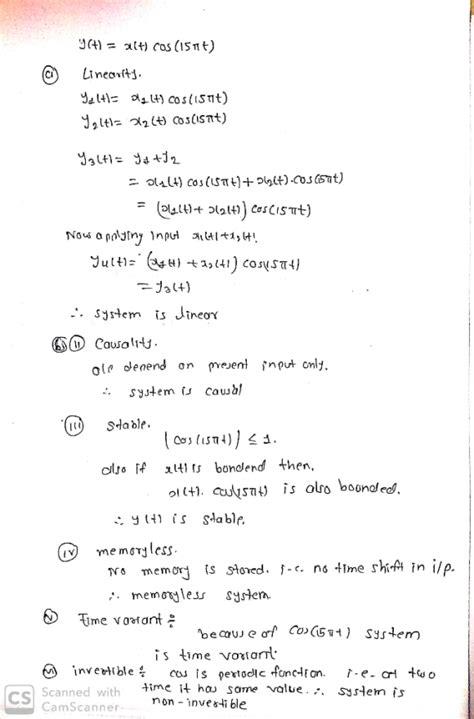 y(t) = x(t) cos(15πt)
(i) Linearity.
y1(t) = x1(t) cos(15πt)
y2(t) = x2(t) cos(15πt)
y3(t) = y1 + y2
= x1(t) cos(15πt) + x2(t).cos(15πt)
= (x1(t) + x2(t)) cos(15πt)
Now applying input x1(t)+x2(t).
y4(t) = (x1(t) + x2(t)) cos(15πt)
= y3(t)
∴ system is linear
(ii) Causality.
o/p depend on present input only.
∴ system is causal
(iii) stable.
|cos(15πt)| ≤ 1.
also if x(t) is bondend then,
x(t). cos(15πt) is also boonded.
∴ y(t) is stable.
(iv) memoryless.
No memory is stored. i-e. no time shift in i/p.
∴ memoryless system
(v) Time variant :
because of cos(15πt) system
is time variant.
(vi) invertible : cos is periodic function. i-e- at two
time it has same value. ∴ system is
non-invertible
CS Scanned with
CamScanner